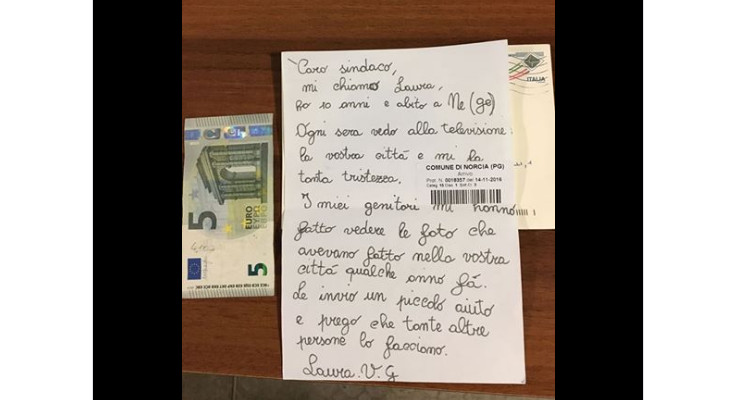 Caro sindaco,
mi chiamo Laura,
ho 10 anni e abito a Ne (ge)
Ogni sera vedo alla televisione
la vostra città e mi fa
tanta tristezza.
I miei genitori mi hanno
fatto vedere le foto che
avevano fatto nella vostra
città qualche anno fá.
Le invio un piccolo aiuto
e prego che tante altre
persone lo facciano.
Laura. V. G
COMUNE DI NORCIA (PG)
Arrivo
Prot. N. 0018357 del 14-11-2016
ITALIA
5
EURO
ΕΥΡΩ
ЕВРО
5